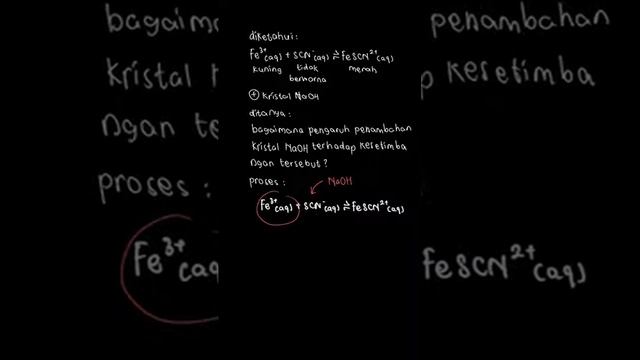 diketahui:
Fe³⁺(aq) + SCN⁻(aq) ⇌ FeSCN²⁺(aq)
kuning tidak merah
berwarna
⊕ kristal NaOH
ditanya:
bagaimana pengaruh penambahan
kristal NaOH terhadap kesetimba
ngan tersebut?
proses: NaOH
Fe³⁺(aq) + SCN⁻(aq) ⇌ FeSCN²⁺(aq)